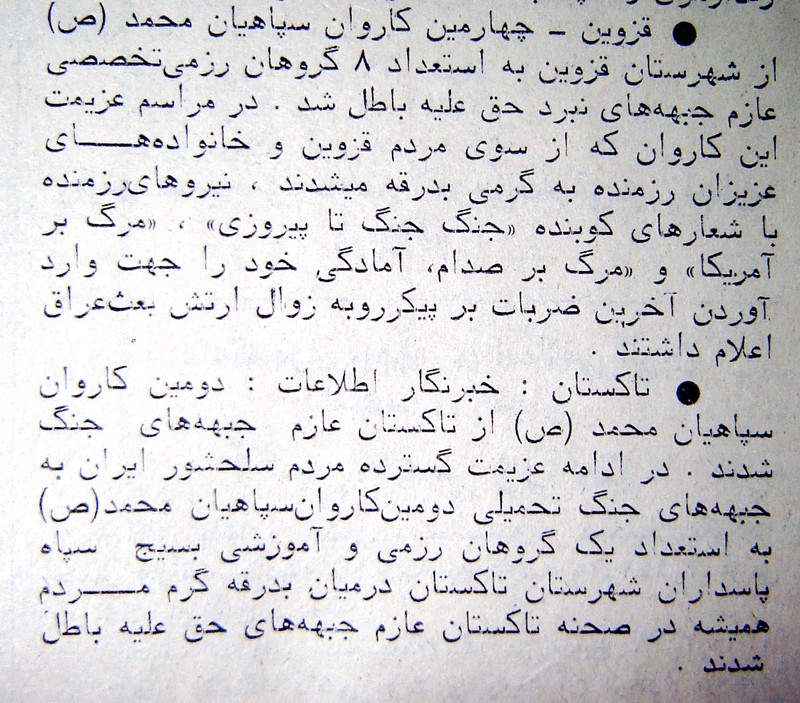 ● قزوین ـ چهارمین کاروان سپاهیان محمد (ص)
از شهرستان قزوین به استعداد ۸ گروهان رزمی‌تخصصی
عازم جبهه‌های نبرد حق علیه باطل شد . در مراسم عزیمت
این کاروان که از سوی مردم قزوین و خانواده‌هـــای
عزیزان رزمنده به گرمی بدرقه میشدند ، نیروهای‌رزمنده
با شعارهای کوبنده «جنگ جنگ تا پیروزی» ، «مرگ بر
آمریکا» و «مرگ بر صدام، آمادگی خود را جهت وارد
آوردن آخرین ضربات بر پیکرروبه زوال ارتش بعث‌عراق
اعلام داشتند .
● تاکستان : خبرنگار اطلاعات : دومین کاروان
سپاهیان محمد (ص) از تاکستان عازم جبهه‌های جنگ
شدند . در ادامه عزیمت گسترده مردم سلحشور ایران به
جبهه‌های جنگ تحمیلی دومین‌کاروان‌سپاهیان محمد(ص)
به استعداد یک گروهان رزمی و آموزشی بسیج سپاه
پاسداران شهرستان تاکستان درمیان بدرقه گرم مـــردم
همیشه در صحنه تاکستان عازم جبهه‌های حق علیه باطل
شدند .